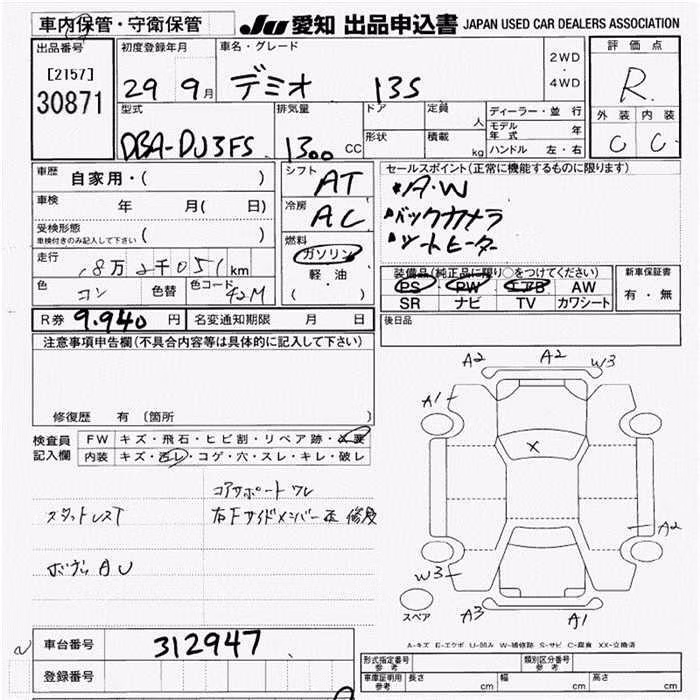 車内保管・守衛保管
JU 愛知 出品申込書 JAPAN USED CAR DEALERS ASSOCIATION
出品番号
[2157]
30871
初度登録年月
29 9月
車名・グレード
デミオ 13S
2WD
・
4WD
評価点
R
外装 内装
C C
型式
DBA-DJ3FS
排気量
1300 CC
ドア
形状
定員 人
積載 kg
ディーラー・並行
モデル年式 年
ハンドル 左・右
車歴
自家用・( )
車検 年 月( 日)
受検形態
車検付きのみ記入して下さい ( )
走行
8万2千051km
色
コン
色替
色コード
42M
シフト
AT
冷房
AC
燃料
ガソリン
軽・油
( )
セールスポイント(正常に機能するものに限ります)
A・W
バックカメラ
シートヒーター
装備品(純正品に限り○をつけてください)
PS PW エアB AW
SR ナビ TV カワシート
新車保証書
有・無
R券 9,940 円 名変通知期限 月 日
後日品
注意事項申告欄(不具合内容等は具体的に記入して下さい)
修復歴 有 〔箇所
検査員記入欄
FW キズ・飛石・ヒビ割・リペア跡・要
内装 キズ・汚レ・コゲ・穴・スレ・キレ・破レ
コアサポートワレ
スタッドレスT 右Fサイドメンバー 修復
ボディAU
A2 A2 W3
A1
X
A2
W3
A3 A1
スペア
A-キズ E-エクボ U-凹み W-補修跡 S-サビ C-腐食 XX-交換済
車台番号 312947
登録番号
形式指定番号 参考
類別区分番号 参考
車庫証明用 参考 長さ cm 幅 cm 高さ cm